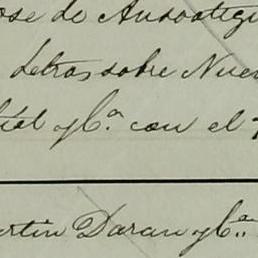 ose de Ansoategui
Letras sobre Nue
y Cª con el
artin Daran y Cª